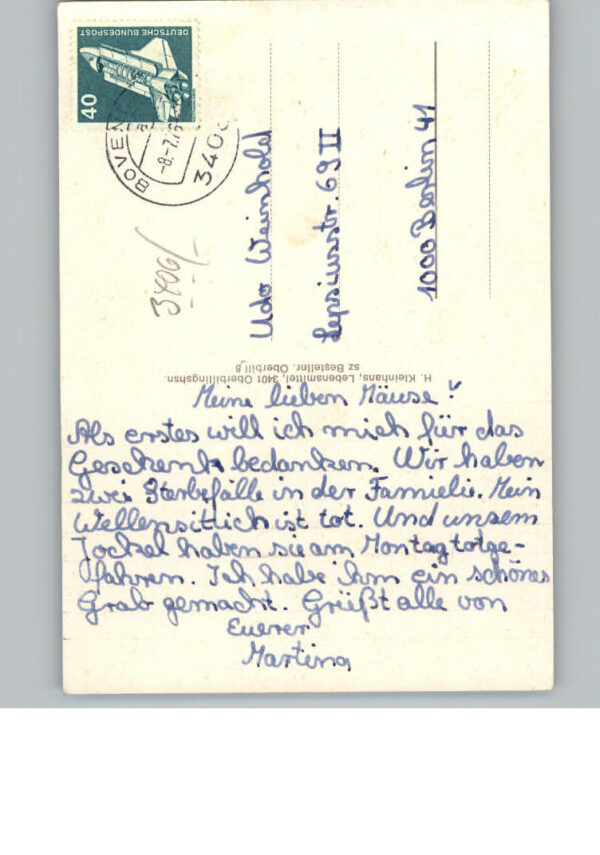 DEUTSCHE BUNDESPOST
40
BOVEN
-8.-7.7
340
3406/
Udo Weinhold
Lepsiusstr. 69 II
1000 Berlin 41
H. Kleinhans, Lebensmittel, 3401 Oberbillingshsn.
sz Bestellnr. Oberbill 8
Meine lieben Mäuse!
Als erstes will ich mich für das
Geschenk bedanken. Wir haben
zwei Sterbefälle in der Famielie. Mein
Wellensittlich ist tot. Und unsern
Jockel haben sie am Montag totge-
fahren. Ich habe ihm ein schönes
Grab gemacht. Grüßt alle von
Euerer
Martina